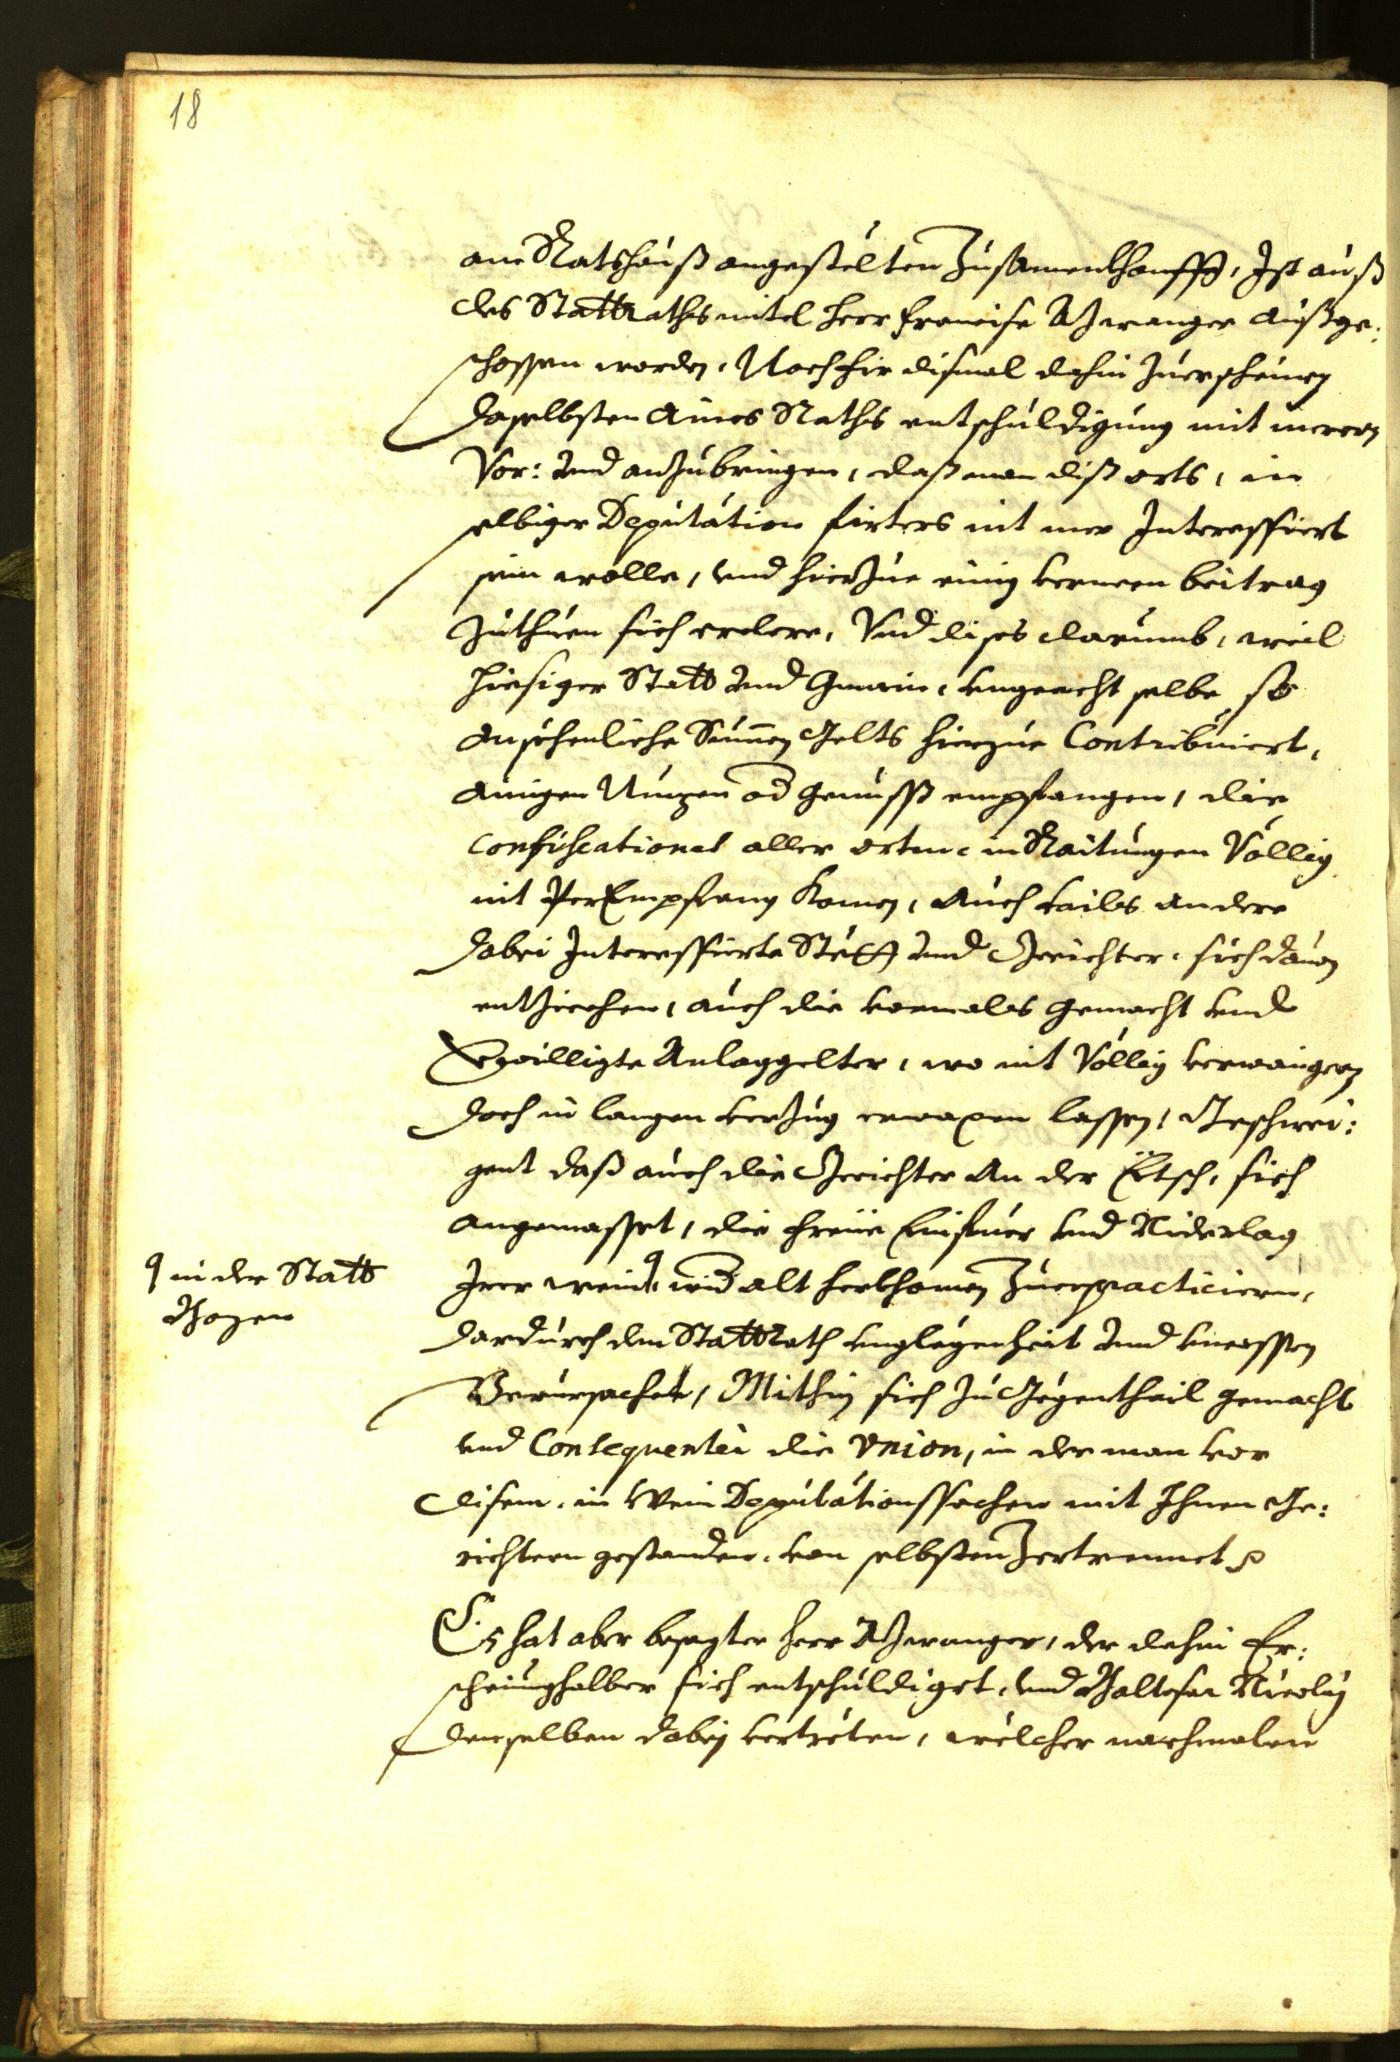 18
am Rathshauß angestelten Zusamenkhonfft, Ist auß
des Stattraths mitel Herr Francisc Azwanger Außge:
schossen worden, Noch fir dismal dahin Zuerscheinen
daselbsten Aines Raths entschuldigung mit mererm
Vor: und anzubringen, daß man diß orts, in
selbiger Deputation firters nit mer Interessiert
sein wolle, und hierzue einig ferneren beitrag
Zuthuen sich erclere, Und dises darumb, weil
hiesiger Statt und Gmain, ungeacht selbe so
ansehenliche Summen Gelts hierzue Contribuiert,
ainigen Nuzen od genuss empfangen, die
Confiscationes aller orten in Raitungen Völlig
nit Per Empfang komen, Auch tails andere
dabei Interessierte Stätt und Gerichter, sich dauon
entziechen, auch die vormals gemacht und
Bewilligte Anlaggelter, wo nit Völlig verwaigern
doch in langen verzug erwaxen lassen, Geschwei:
gent daß auch die Gerichter An der Etsch, sich
angemasset, die freye Einfuer und Niderlag
in der Statt
Bozen
Irer wein, wid alt herkhomen Zuerpracticiern,
dardurch dem Stattrath unglegenheit und unwessen
Verursachet, Mithin sich Zu Gegenthail gemacht
und Consequenter die Union, in der man vor
disem, in Wein Deputationssachen mit Ihnen Ge:
richtern gestanden, von selbsten Zertrennet
Es hat aber besagter Herr Azwanger, der dahin Er:
scheinung halber sich entschuldiget, und Balteser Nicolej
denselben dabej vertreten, welcher nachmalen